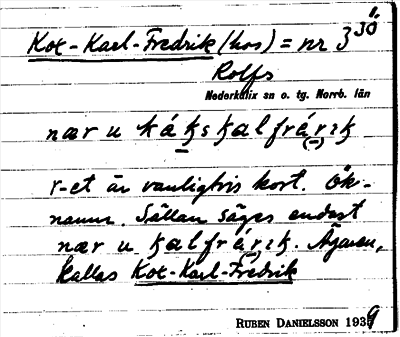 Kox-Karl-Fredrik (hos) = nr 3 30
Rolfs
Nederkalix sn o. tg. Norrb. län
nær u kákskalfrárık
r-et är vanligtvis kort. Ök-
namn. Sällan säges endast
nær u kalfrárık. Ägaren,
kallas Kox-Karl-Fredrik
RUBEN DANIELSSON 1939